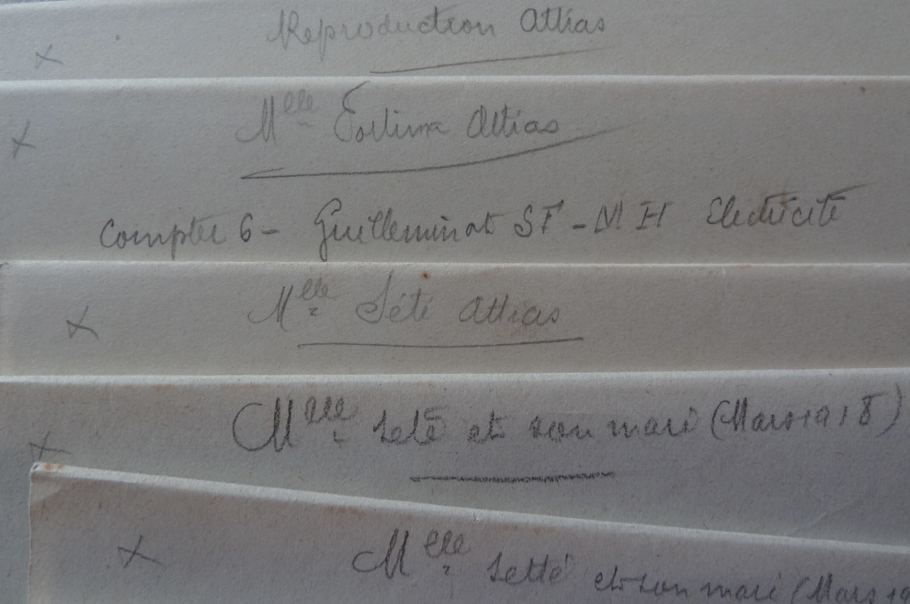 x Reproduction Attias
x Melle Fortuna Attias
Compter 6 - Guilleminot SF - NH Electricité
x Melle Séti Attias
x Melle Seté et son mari (Mars 1918)
x Melle Setté et son mari (Mars 19